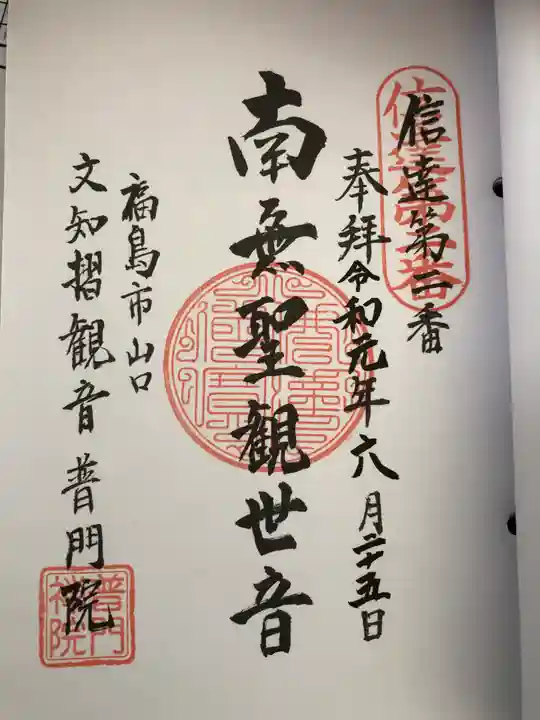 信達第二番
奉拜令和元年六月二十五日
南無聖観世音
福島市山口
文知摺観音普門院